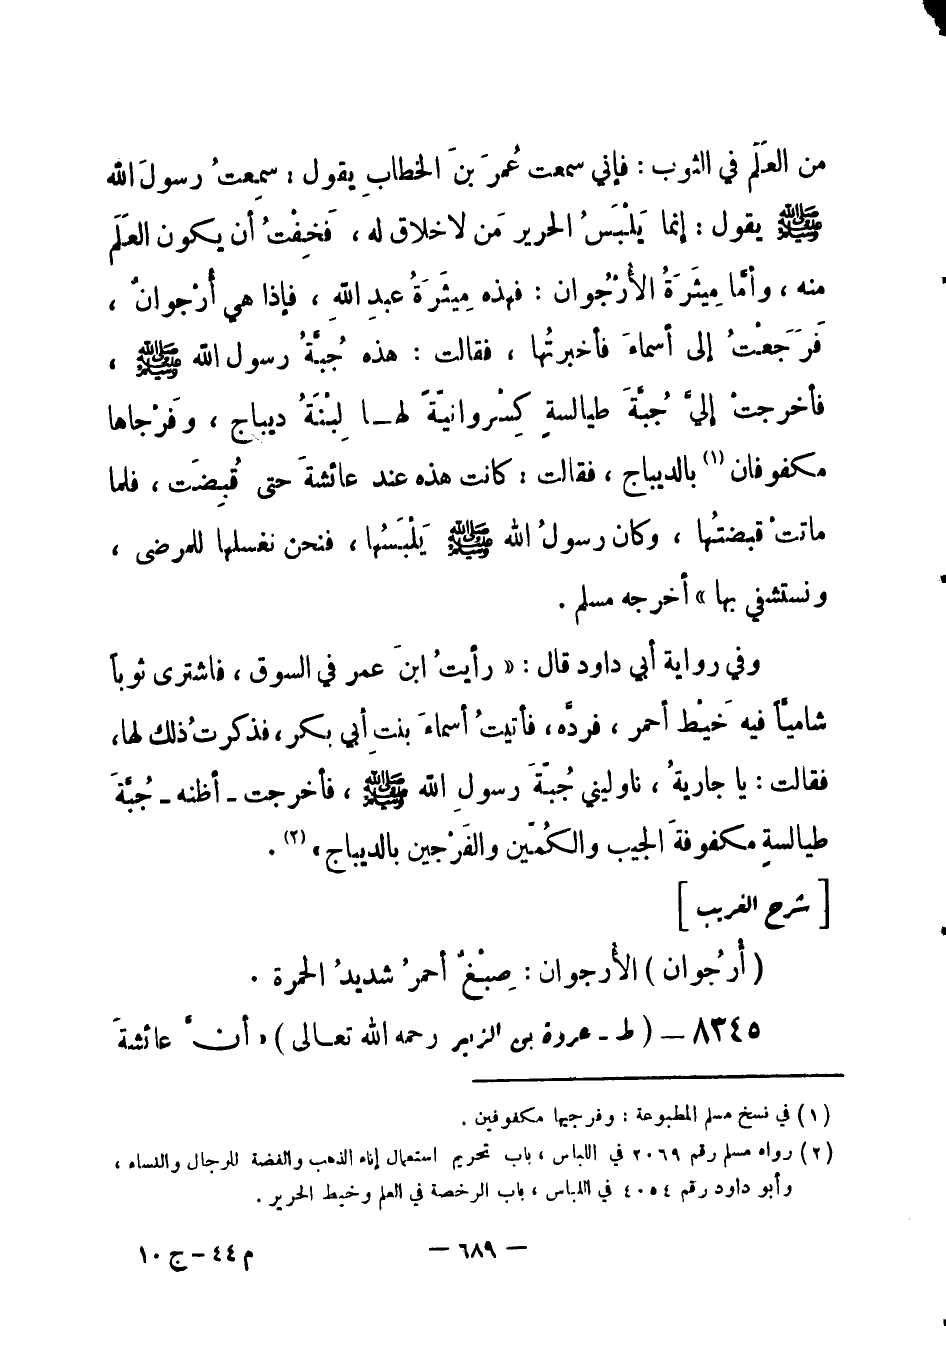 من العَلَم في الثوب : فإني سمعت عُمرَ بنَ الخطابِ يقول : سمِعتُ رسولَ الله
ﷺ يقول : إنما يَلْبَسُ الحرير مَن لاخلاق له ، فَخِفْتُ أن يكون العَلَم
منه ، وأمَّا مِيثَرَةُ الأُرْجُوان : فهذه مِيثَرَةُ عبدِ اللهِ ، فإذا هي أُرْجوانٌ ،
فَرَجَعْتُ إلى أسماءَ فأخبرتُها ، فقالت : هذه جُبَّةُ رسول الله ﷺ ،
فأخرجتْ إليَّ جُبَّةَ طيالسةٍ كِسْروانيّةً لهـا لِبْنَةُ ديباج ، وفَرْجاها
مكفوفان (١) بالديباج ، فقالت : كانت هذه عند عائشةَ حتى قُبِضَت ، فلما
ماتتْ قبضتُها ، وكان رسولُ الله ﷺ يَلْبَسُها ، فنحن نغسلها للمرضى ،
ونستشفي بها » أخرجه مسلم .
وفي رواية أبي داود قال : « رأيتُ ابنَ عمر في السوق ، فاشترى ثوباً
شاميّاً فيه خَيْط أحمر ، فردَّه، فأتيتُ أسماءَ بنتِ أبي بكر، فذكرتُ ذلك لها،
فقالت : يا جاريةُ ، ناوليني جُبّةَ رسولِ الله ﷺ ، فأخرجت ـ أظنه ـ جُبَّةَ
طيالسةٍ مكفوفةَ الجيب والكُمّين والفَرْجين بالديباج» (٢) .
[ شرح الغريب ]
( أُرجُوان ) الأُرجوان : صِبْغٌ أحمرُ شديدُ الحمرة .
٨٣٤٥ ـ ( ط ـ عروة بن الزبير رحمه الله تعـالى ) « أنَّ عائشةَ
(١) في نسخ مسلم المطبوعة : وفرجيها مكفوفين .
(٢) رواه مسلم رقم ٢٠٦٩ في اللباس ، باب تحريم استعمال إناء الذهب والفضة للرجال والنساء ،
وأبو داود رقم ٤٠٥٤ في اللباس ، باب الرخصة في العلم وخيط الحرير .
— ٦٨٩ —
م ٤٤ – ج ١٠